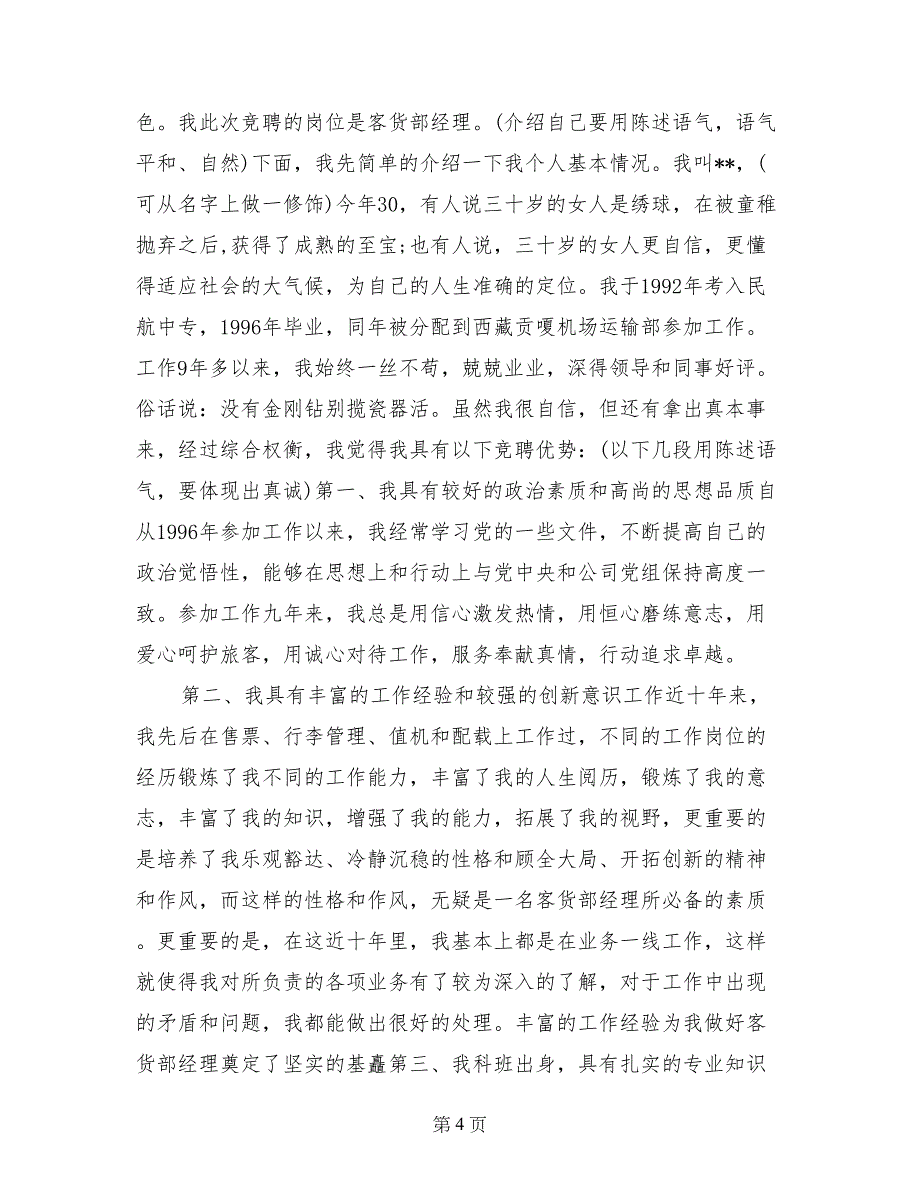 色。我此次竞聘的岗位是客货部经理。(介绍自己要用陈述语气，语气
平和、自然)下面，我先简单的介绍一下我个人基本情况。我叫**，(
可从名字上做一修饰)今年30，有人说三十岁的女人是绣球，在被童稚
抛弃之后,获得了成熟的至宝;也有人说，三十岁的女人更自信，更懂
得适应社会的大气候，为自己的人生准确的定位。我于1992年考入民
航中专，1996年毕业，同年被分配到西藏贡嘎机场运输部参加工作。
工作9年多以来，我始终一丝不苟，兢兢业业，深得领导和同事好评。
俗话说：没有金刚钻别揽瓷器活。虽然我很自信，但还有拿出真本事
来，经过综合权衡，我觉得我具有以下竞聘优势：(以下几段用陈述语
气，要体现出真诚)第一、我具有较好的政治素质和高尚的思想品质自
从1996年参加工作以来，我经常学习党的一些文件，不断提高自己的
政治觉悟性，能够在思想上和行动上与党中央和公司党组保持高度一
致。参加工作九年来，我总是用信心激发热情，用恒心磨练意志，用
爱心呵护旅客，用诚心对待工作，服务奉献真情，行动追求卓越。
第二、我具有丰富的工作经验和较强的创新意识工作近十年来，
我先后在售票、行李管理、值机和配载上工作过，不同的工作岗位的
经历锻炼了我不同的工作能力，丰富了我的人生阅历，锻炼了我的意
志，丰富了我的知识，增强了我的能力，拓展了我的视野，更重要的
是培养了我乐观豁达、冷静沉稳的性格和顾全大局、开拓创新的精神
和作风，而这样的性格和作风，无疑是一名客货部经理所必备的素质
。更重要的是，在这近十年里，我基本上都是在业务一线工作，这样
就使得我对所负责的各项业务有了较为深入的了解，对于工作中出现
的矛盾和问题，我都能做出很好的处理。丰富的工作经验为我做好客
货部经理奠定了坚实的基矗第三、我科班出身，具有扎实的专业知识
第 4 页